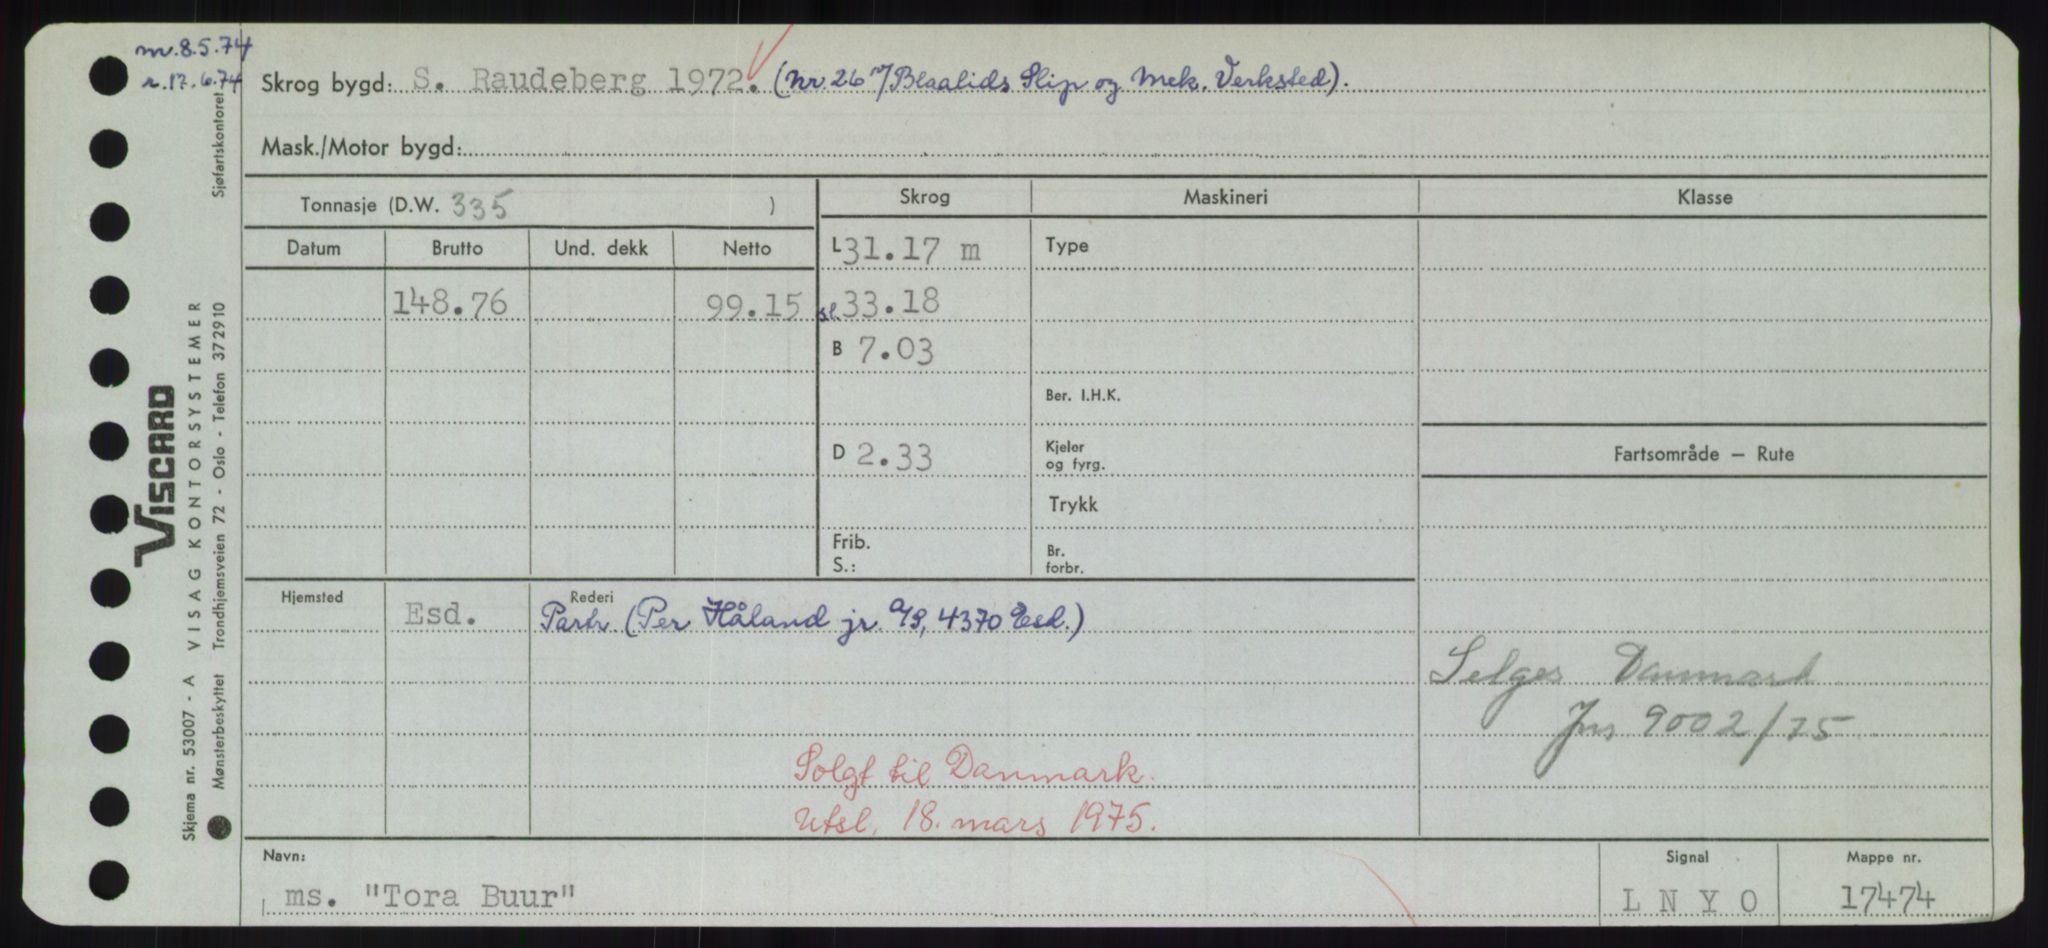 m. 8.5.74
r. 17.6.74
Skrog bygd: S. Raudeberg 1972. (Nr. 26 v/Blaalids Slip og Mek. Verksted).
Mask./Motor bygd:
Tonnasje (D.W. 335 )
Skrog Maskineri Klasse
Datum Brutto Und. dekk Netto
L 31.17 m Type
148.76 99.15 sl. 33.18
B 7.03
Ber. I.H.K.
D 2.33 Kjeler og fyrg.
Fartsområde – Rute
Trykk
Frib.
S.:
Br. forbr.
Hjemsted Rederi
Esd. Partr. (Per Håland jr. A/S, 4370 Esd.)
Selges Danmark
Jnr 9002/75
Solgt til Danmark.
Utsl. 18. mars 1975.
Navn: Signal Mappe nr.
ms. "Tora Buur" L N Y O 17474
VISCARD
Skjema nr. 53007 - A VISAG KONTORSYSTEMER
Mønsterbeskyttet Trondhjemsveien 72 - Oslo - Telefon 372910 Sjøfartskontoret